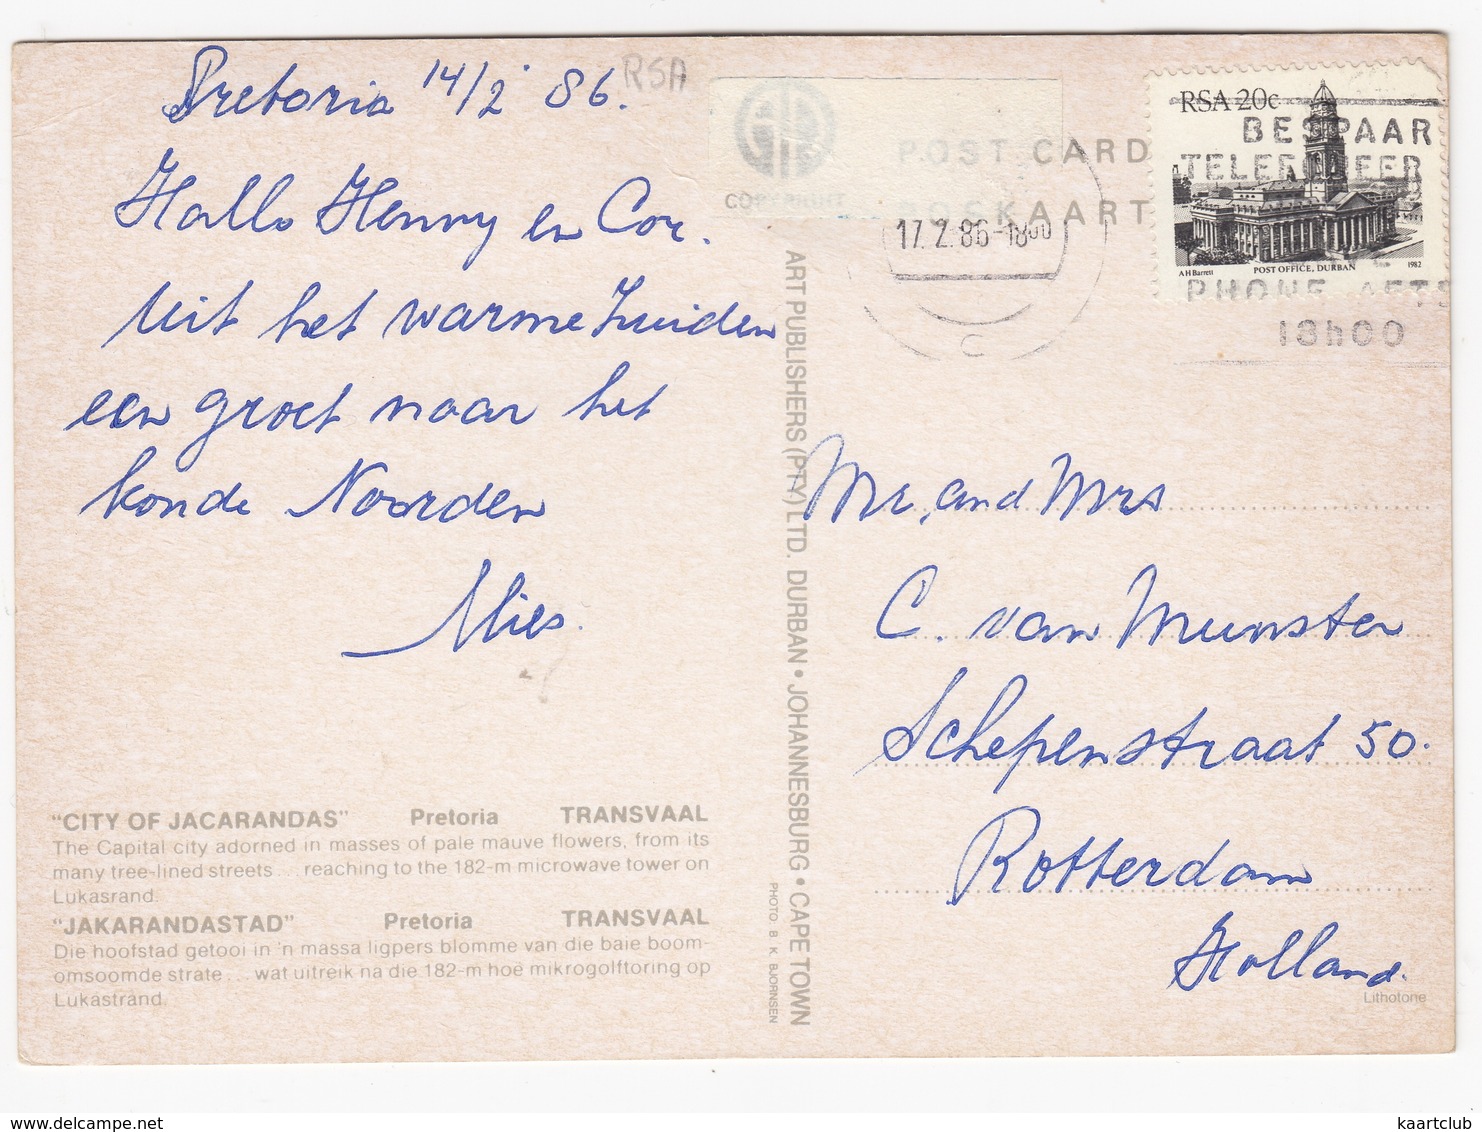 Pretoria 14/2 '86.
RSA
Hallo Henny en Cor.
Uit het warme Zuiden
een groet naar het
koude Noorden
Mies.
"CITY OF JACARANDAS" Pretoria TRANSVAAL
The Capital city adorned in masses of pale mauve flowers, from its
many tree-lined streets... reaching to the 182-m microwave tower on
Lukasrand.
"JAKARANDASTAD" Pretoria TRANSVAAL
Die hoofstad getooi in 'n massa ligpers blomme van die baie boom-
omsoomde strate... wat uitreik na die 182-m hoë mikrogolftoring op
Lukastrand
ART PUBLISHERS (PTY) LTD. DURBAN • JOHANNESBURG • CAPE TOWN
PHOTO. B. K. BJORNSEN
COPYRIGHT
POST CARD
POSKAART
17.2.86-1800
C
RSA 20c
BESPAAR
A H Barrett POST OFFICE, DURBAN 1982
PHONE
18h00
Mr. and Mrs
C. van Munster
Schepenstraat 50.
Rotterdam
Holland.
Lithotone
kaartclub